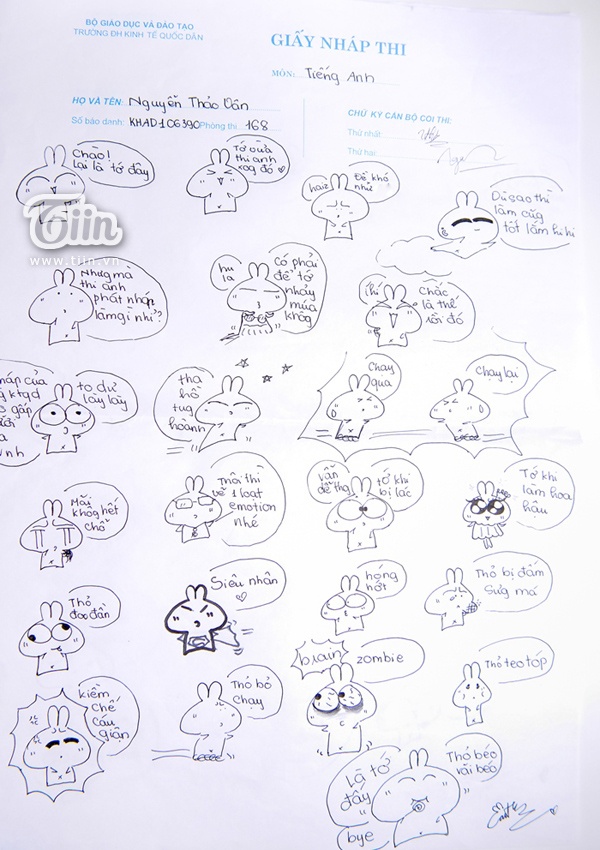 BỘ GIÁO DỤC VÀ ĐÀO TẠO
TRƯỜNG ĐH KINH TẾ QUỐC DÂN
GIẤY NHÁP THI
MÔN: Tiếng Anh
HỌ VÀ TÊN: Nguyễn Thảo Vân
Số báo danh: KHAD106390 Phòng thi 168
CHỮ KÝ CÁN BỘ COI THI:
Thứ nhất:
Thứ hai
Chào!
lại là tớ đây
Tớ vừa
thi anh
xog đó
haiz
Đề khó
như
Dù sao thì
làm cũg
tốt lắm hi hi
Tiin
www.tiin.vn
Nhưg mà
thi anh
phát nháp
làm gì nhỉ?
hu
la
có phải
để tớ
nhảy
múa
khôg
hí
chắc
là thế
rồi đó
nháp của
ktqd
gấp
to dư
lày lày
tha
hồ
tug
hoành
chạy
qua
chạy lại
Mãi
khôg hết
chỗ
Thôi thì
vẽ 1 loạt
emotion
nhé
vẫn
dễ thg
tớ khi
bị lác
Tớ khi
làm hoa
hậu
Thỏ
đao đần
Siêu nhân
hóng
hớt
Thỏ bị đấm
sưg má
kiềm
chế
cáu
giận
Thỏ bỏ
chạy
brain
zombie
Thỏ teo tóp
Là tớ
đấy
bye
Thỏ béo
vãi béo